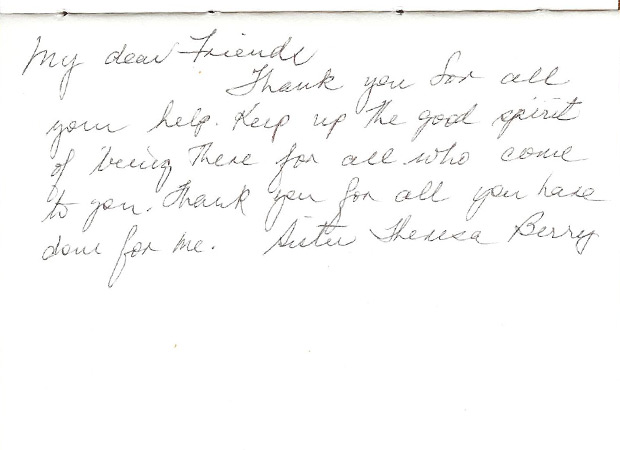 My dear Friends
Thank you for all
your help. Keep up the good spirit
of being there for all who come
to you. Thank you for all you have
done for me. Sister Theresa Berry